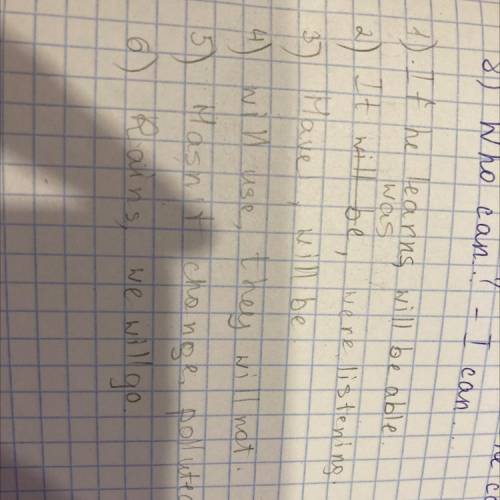 8) Who can...? - I can...
1). If he learns, will be able.
2) It was, were listening.
3) Have, will be
4) will use, they will not.
5) Hasn't change,
6) Rains, we will go.